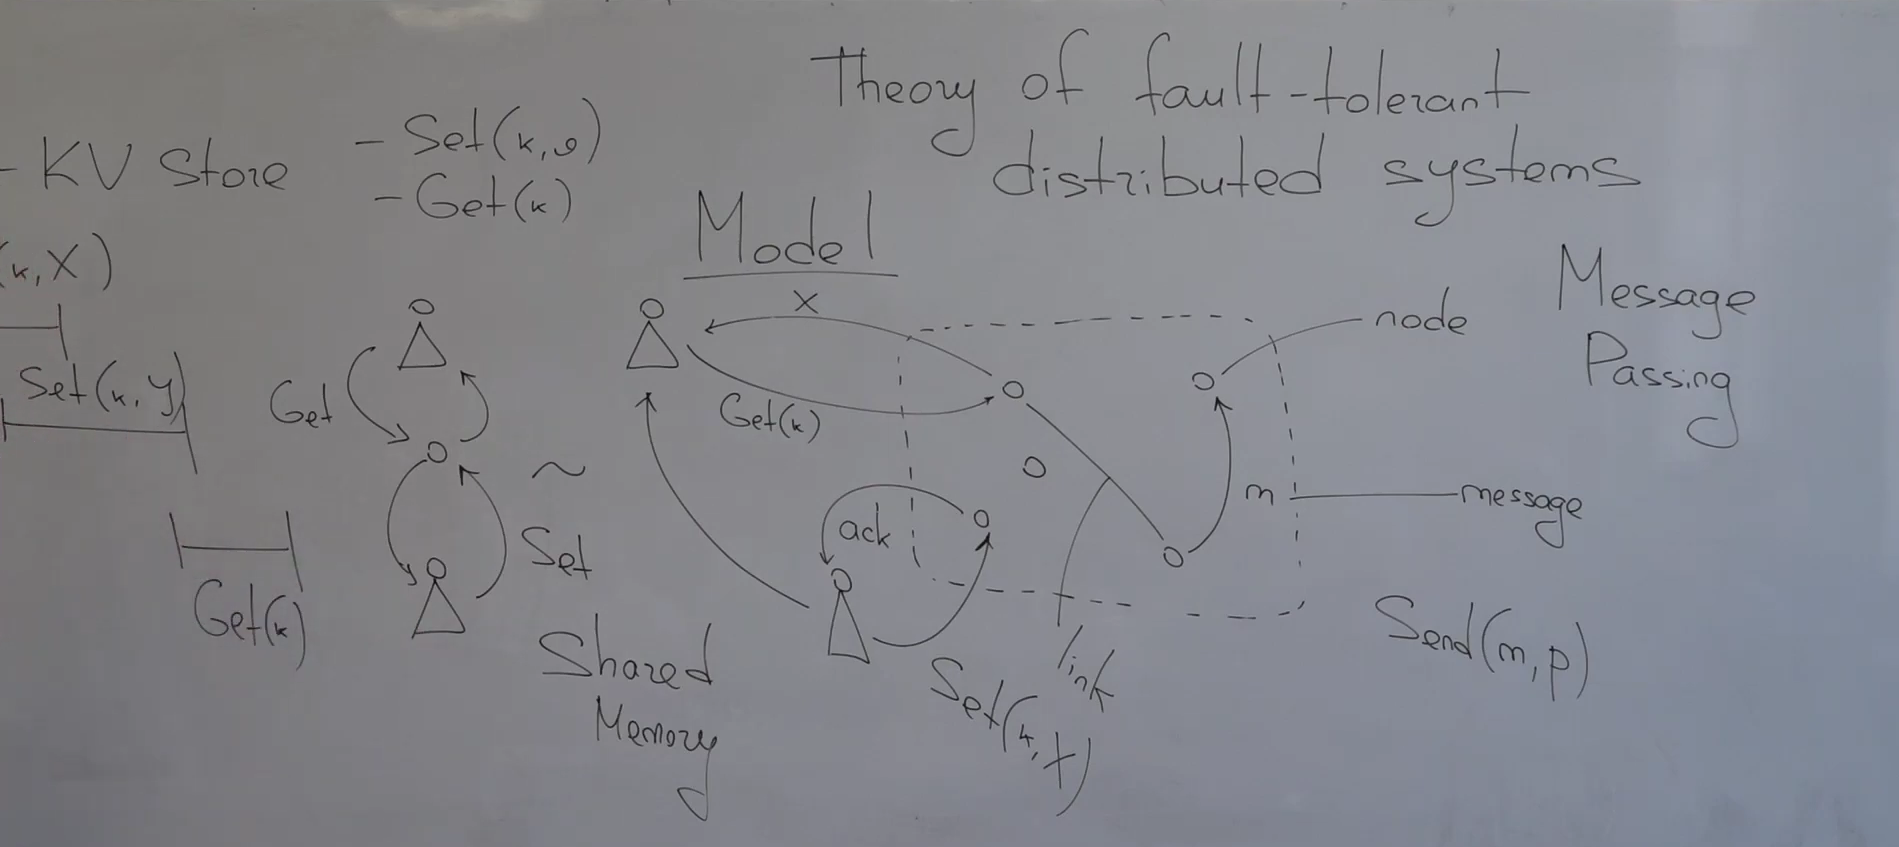 Theory of fault-tolerant
distributed systems
- KV Store
- Set(k,v)
- Get(k)
Model
(k,X)
Set(k,y)
Get(k)
Get
~
Set
Shared
Memory
X
Get(k)
ack
Set(k,x)
link
node
m
message
Message
Passing
Send(m,p)